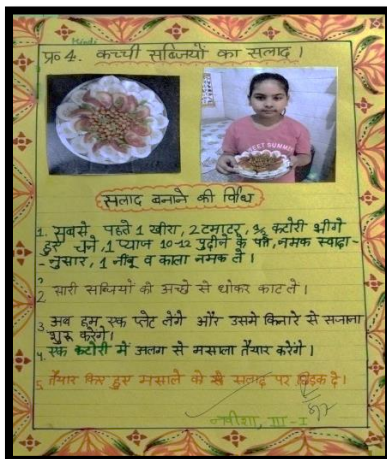 Hindi
प्र० 4. कच्ची सब्जियों का सलाद।
SWEET SUMMER
सलाद बनाने की विधि
1. सबसे पहले 1 खीरा, 2 टमाटर, कटोरी भीगे
हुए चने, 1 प्याज 10-12 पुदीने के पत्ते, नमक स्वादा-
-नुसार, 1 नींबू व काला नमक ले।
2. सारी सब्जियों को अच्छे से धोकर काट ले।
3 अब हम एक प्लेट लेंगे और उसमे किनारे से सजाना
शुरू करेंगे।
4. एक कटोरी में अलग से मसाला तैयार करेंगे।
5. तैयार किए हुए मसाले को सलाद पर छिड़क दे।
III-I